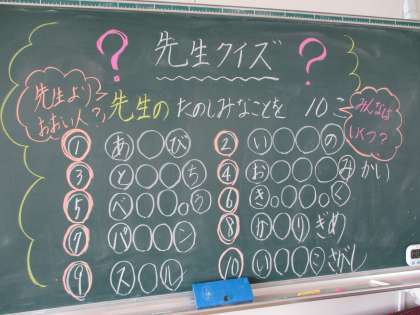 ? 先生クイズ ?
先生より
おおい人?
先生の たのしみなことを 10こ
みんなは
いくつ?
① あ○○び ② い○○○の
③ と○○○ち ④ お○○○みかい
⑤ べ○○。う ⑥ き○○。く
⑦ パ○○ン ⑧ か○りぎめ
⑨ ス○ル ⑩ い○○シさがし